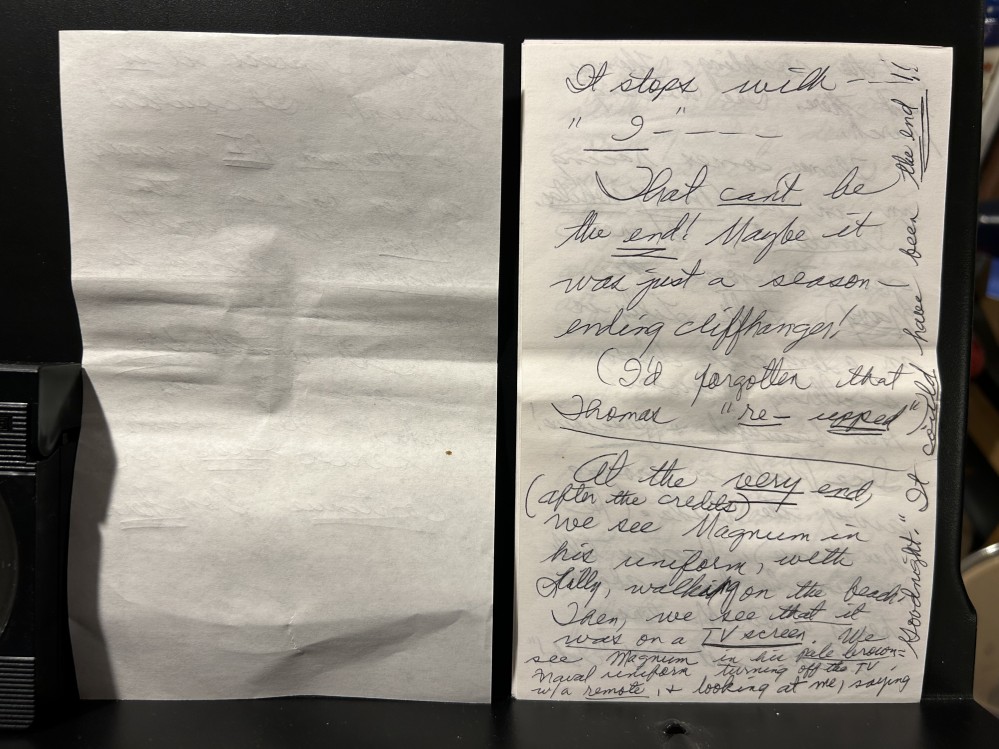 It stops with - - - -
" I - " - - - -
That can't be
the end! Maybe it
was just a season-
ending cliffhanger!
(I'd forgotten that
Thomas "re-upped"
At the very end,
(after the credits)
we see Magnum in
his uniform, with
Lilly, walking on the beach.
Then, we see that it
was on a TV screen. We
see Magnum in his pale brown
Naval uniform turning off the TV
w/a remote, & looking at me, saying
"Goodnight." It could have been the end!!